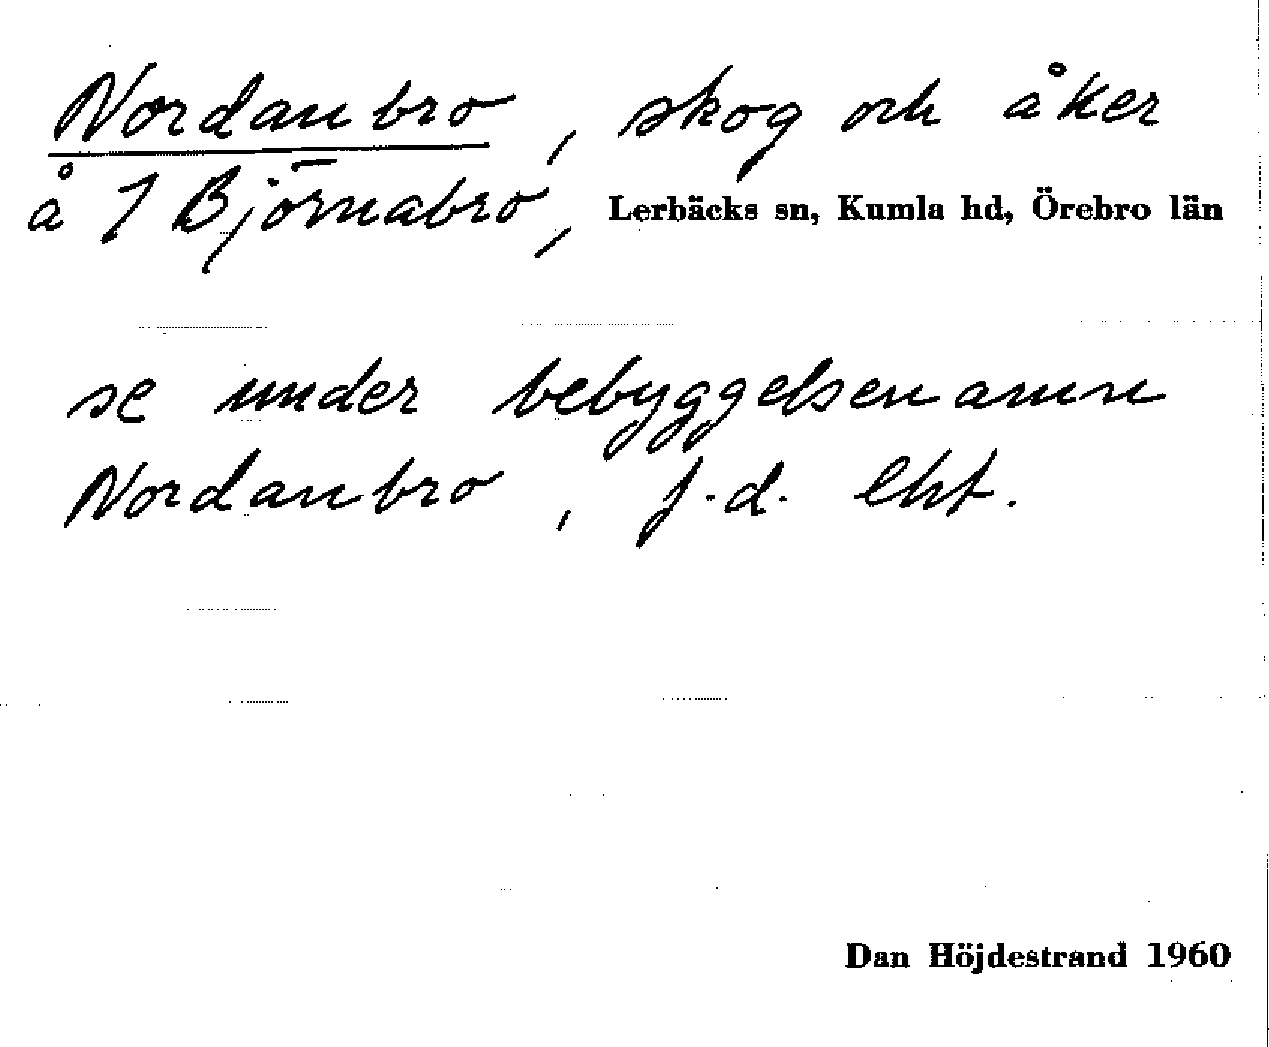 Nordanbro, skog och åker
å 7 Björnabro, Lerbäcks sn, Kumla hd, Örebro län
se under bebyggelsenamn
Nordanbro, f.d. lht.
Dan Höjdestrand 1960